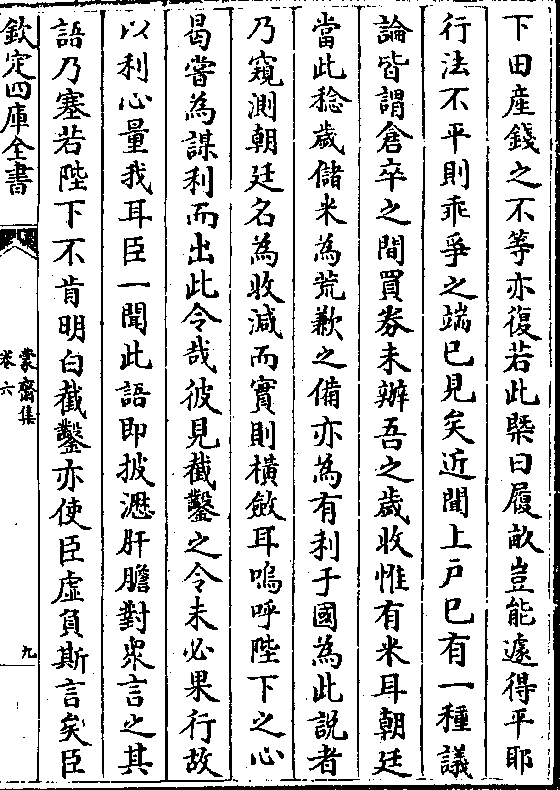 下田産錢之不等亦復若此槩曰履畝豈能遽得平耶
行法不平則乖爭之端已見矣近聞上戸已有一種議
論皆謂倉卒之間買劵未辦吾之歲收惟有米耳朝廷
當此稔歲儲米為荒歉之備亦為有利于國為此說者
乃窺測朝廷名為收減而實則横斂耳嗚呼陛下之心
曷嘗為謀利而出此令哉彼見截鑿之令未必果行故
以利心量我耳臣一聞此語即披瀝肝膽對衆言之其
語乃塞若陛下不肯明白截鑿亦使臣虛負斯言矣臣
欽定四庫全書
蒙齋集
卷六
九